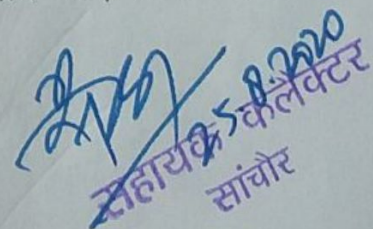 25.8.2020
सहायक कलैक्टर
सांचौर